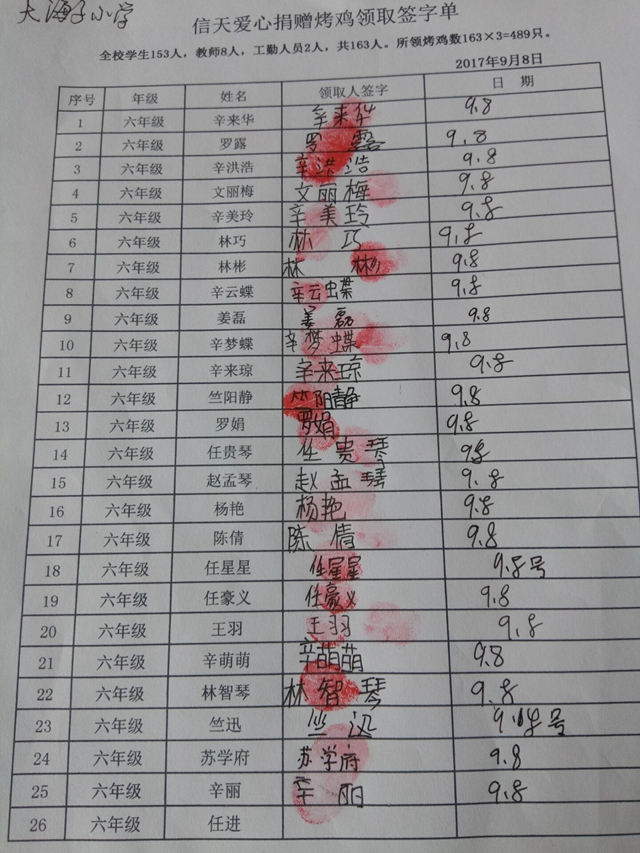 大海子小学
信天爱心捐赠烤鸡领取签字单
全校学生153人，教师8人，工勤人员2人，共163人。所领烤鸡数163×3=489只。
2017年9月8日
序号 年级 姓名 领取人签字 日期
1 六年级 辛来华 辛来华 9.8
2 六年级 罗露 罗露 9.8
3 六年级 辛洪浩 辛洪浩 9.8
4 六年级 文丽梅 文丽梅 9.8
5 六年级 辛美玲 辛美玲 9.8
6 六年级 林巧 林巧 9.8
7 六年级 林彬 林彬 9.8
8 六年级 辛云蝶 辛云蝶 9.8
9 六年级 姜磊 姜磊 9.8
10 六年级 辛梦蝶 辛梦蝶 9.8
11 六年级 辛来琼 辛来琼 9.8
12 六年级 竺阳静 竺阳静 9.8
13 六年级 罗娟 罗娟 9.8
14 六年级 任贵琴 任贵琴 9.8
15 六年级 赵孟琴 赵孟琴 9.8
16 六年级 杨艳 杨艳 9.8
17 六年级 陈倩 陈倩 9.8
18 六年级 任星星 任星星 9.8号
19 六年级 任豪义 任豪义 9.8
20 六年级 王羽 王羽 9.8
21 六年级 辛萌萌 辛萌萌 9.8
22 六年级 林智琴 林智琴 9.8
23 六年级 竺迅 竺迅 号
24 六年级 苏学府 苏学府 9.8
25 六年级 辛丽 辛丽 9.8
26 六年级 任进